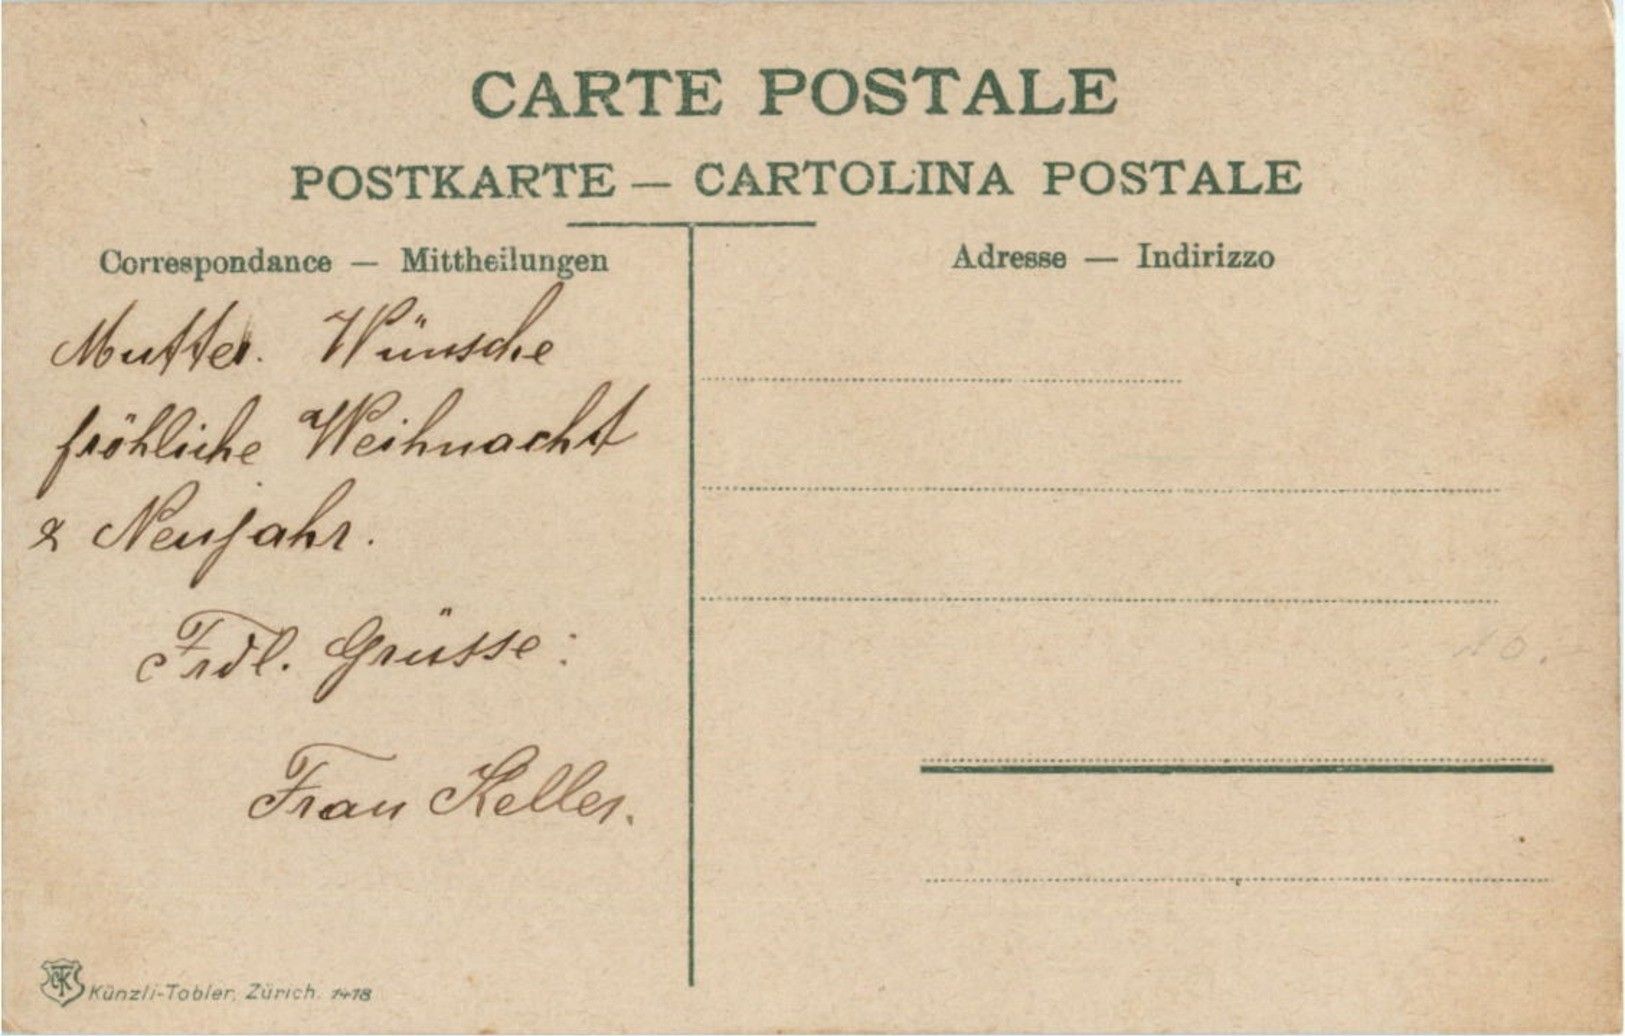 CARTE POSTALE
POSTKARTE — CARTOLINA POSTALE
Correspondance — Mittheilungen
Adresse — Indirizzo
Mutter. Wünsche
fröhliche Weihnacht
& Neujahr.
Frdl. Grüsse:
Frau Keller.
10.
Künzli-Tobler, Zürich. 1418